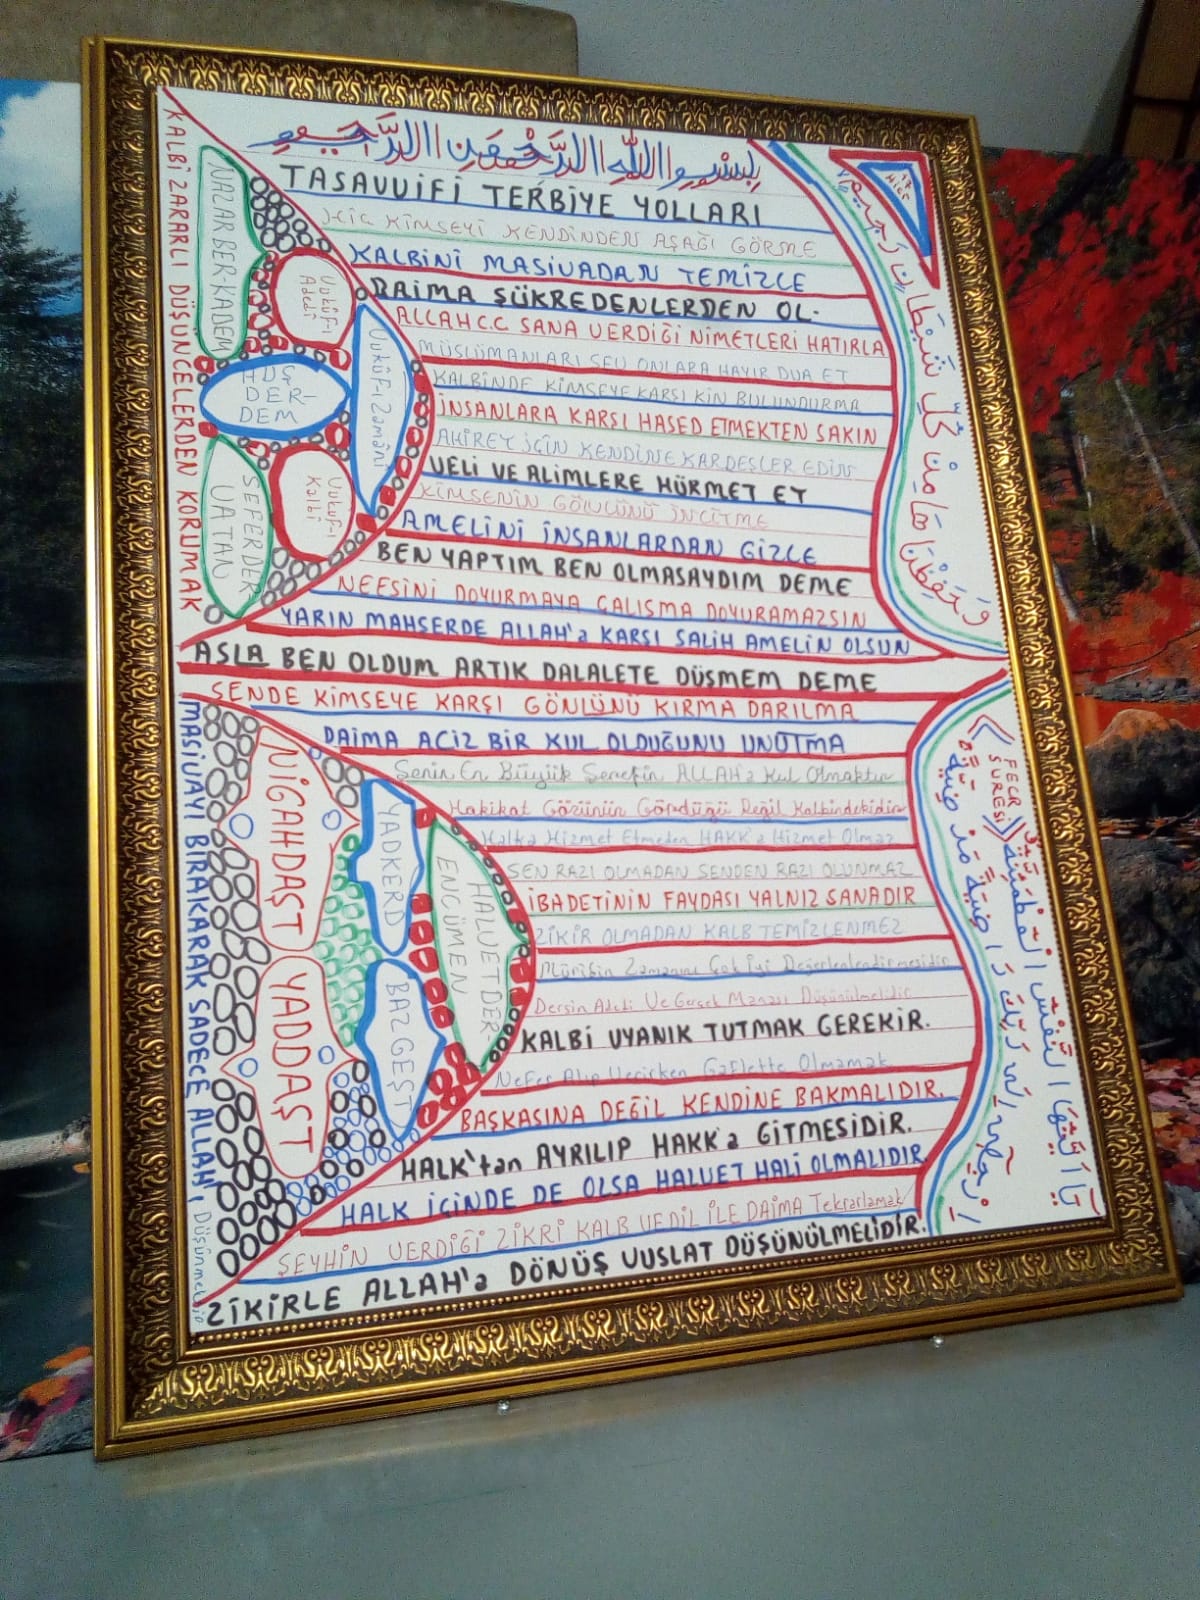 بِسْمِ اللّٰهِ الرَّحْمٰنِ الرَّحِيمِ
TASAVVIFİ TERBİYE YOLLARI
HİÇ KİMSEYİ KENDİNDEN AŞAĞI GÖRME
KALBİNİ MASİVADAN TEMİZLE
DAİMA ŞÜKREDENLERDEN OL.
ALLAH C.C SANA VERDİĞİ NİMETLERİ HATIRLA
MÜSLÜMANLARI SEV ONLARA HAYIR DUA ET
KALBİNDE KİMSEYE KARŞI KİN BULUNDURMA
İNSANLARA KARŞI HASED ETMEKTEN SAKIN
AHİRET İÇİN KENDİNE KARDEŞLER EDİN
VELİ VE ALİMLERE HÜRMET ET
KİMSENİN GÖNLÜNÜ İNCİTME
AMELİNİ İNSANLARDAN GİZLE
BEN YAPTIM BEN OLMASAYDIM DEME
NEFSİNİ DOYURMAYA ÇALIŞMA DOYURAMAZSIN
YARIN MAHŞERDE ALLAH'a KARŞI SALİH AMELİN OLSUN
ASLA BEN OLDUM ARTIK DALALETE DÜŞMEM DEME
SENDE KİMSEYE KARŞI GÖNLÜNÜ KIRMA DARILMA
DAİMA ACİZ BİR KUL OLDUĞUNU UNUTMA
Senin En Büyük Şerefin ALLAH'a Kul Olmaktır
Hakikat Gözünün Gördüğü Değil Kalbindekidir
Halka Hizmet Etmeden HAKK'a Hizmet Olmaz
SEN RAZI OLMADAN SENDEN RAZI OLUNMAZ
İBADETİNİN FAYDASI YALNIZ SANADIR
ZİKİR OLMADAN KALB TEMİZLENMEZ
Müridin Zamanını Çok İyi
Dersin Adedi Ve Gerçek Manası Düşünülmelidir
KALBİ UYANIK TUTMAK GEREKİR.
Nefes Alıp Verirken Gaflette Olmamak
BAŞKASINA DEĞİL KENDİNE BAKMALIDIR.
HALK'tan AYRILIP HAKK'a GİTMESİDİR.
HALK İÇİNDE DE OLSA HALVET HALİ OLMALIDIR.
ŞEYHİN VERDİĞİ ZİKRİ KALB VE DİL İLE DAİMA Tekrarlamak
ZİKİRLE ALLAH'a DÖNÜŞ VUSLAT DÜŞÜNÜLMELİDİR.
KALBİ ZARARLI DÜŞÜNCELERDEN KORUMAK
NAZAR BER-KADEM
Vukûf-ı
Adedî
Vukûf-ı Zamânî
HUŞ
DER-
DEM
Vukuf-ı
Kalbî
SEFER DER
VATAN
MASİVAYI BIRAKARAK SADECE ALLAH'ı Düşünmelidir
NİGAHDAŞT
YADKERD
HALVET DER-
ENCÜMEN
YADDAŞT
BAZGEŞT
17
HİCR
وَحَفِظْنَاهَا مِنْ كُلِّ شَيْطَانٍ رَجِيمٍ
FECR
SURESİ
يَا أَيَّتُهَا النَّفْسُ الْمُطْمَئِنَّةُ
ارْجِعِي إِلَى رَبِّكِ رَاضِيَةً مَرْضِيَّةً